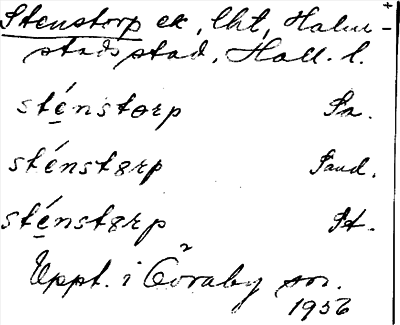 Stenstorp ek, lht, Halm-
stads stad, Hall. l. +
sténstorp Sa.
sténstørp Sand.
sténstørp St.
Uppt. i Övraby sn.
1956